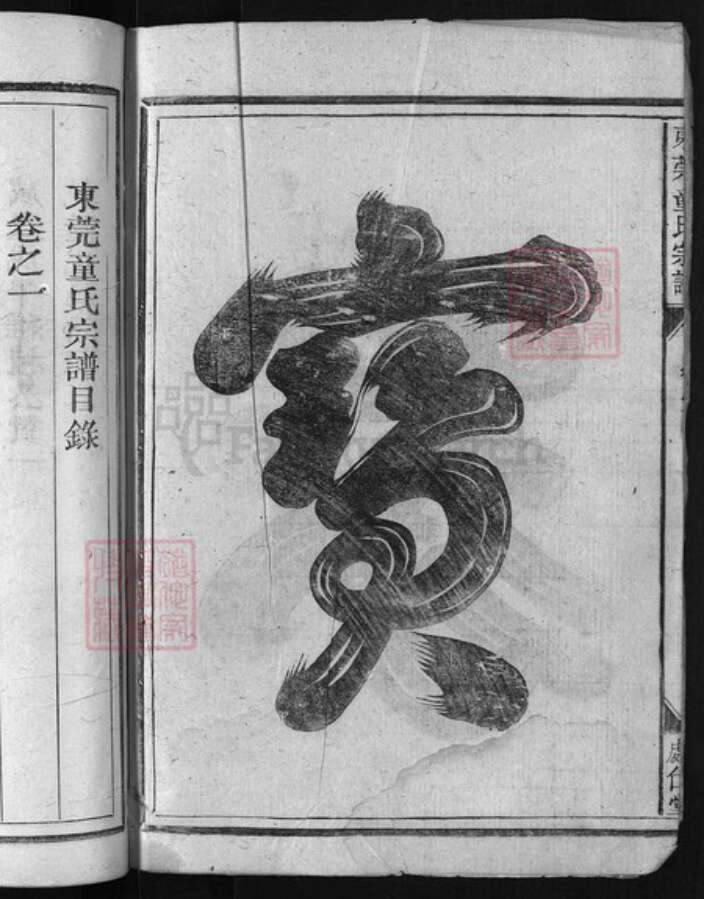 東莞童氏宗譜
寶
東莞童氏宗譜目錄
卷之一